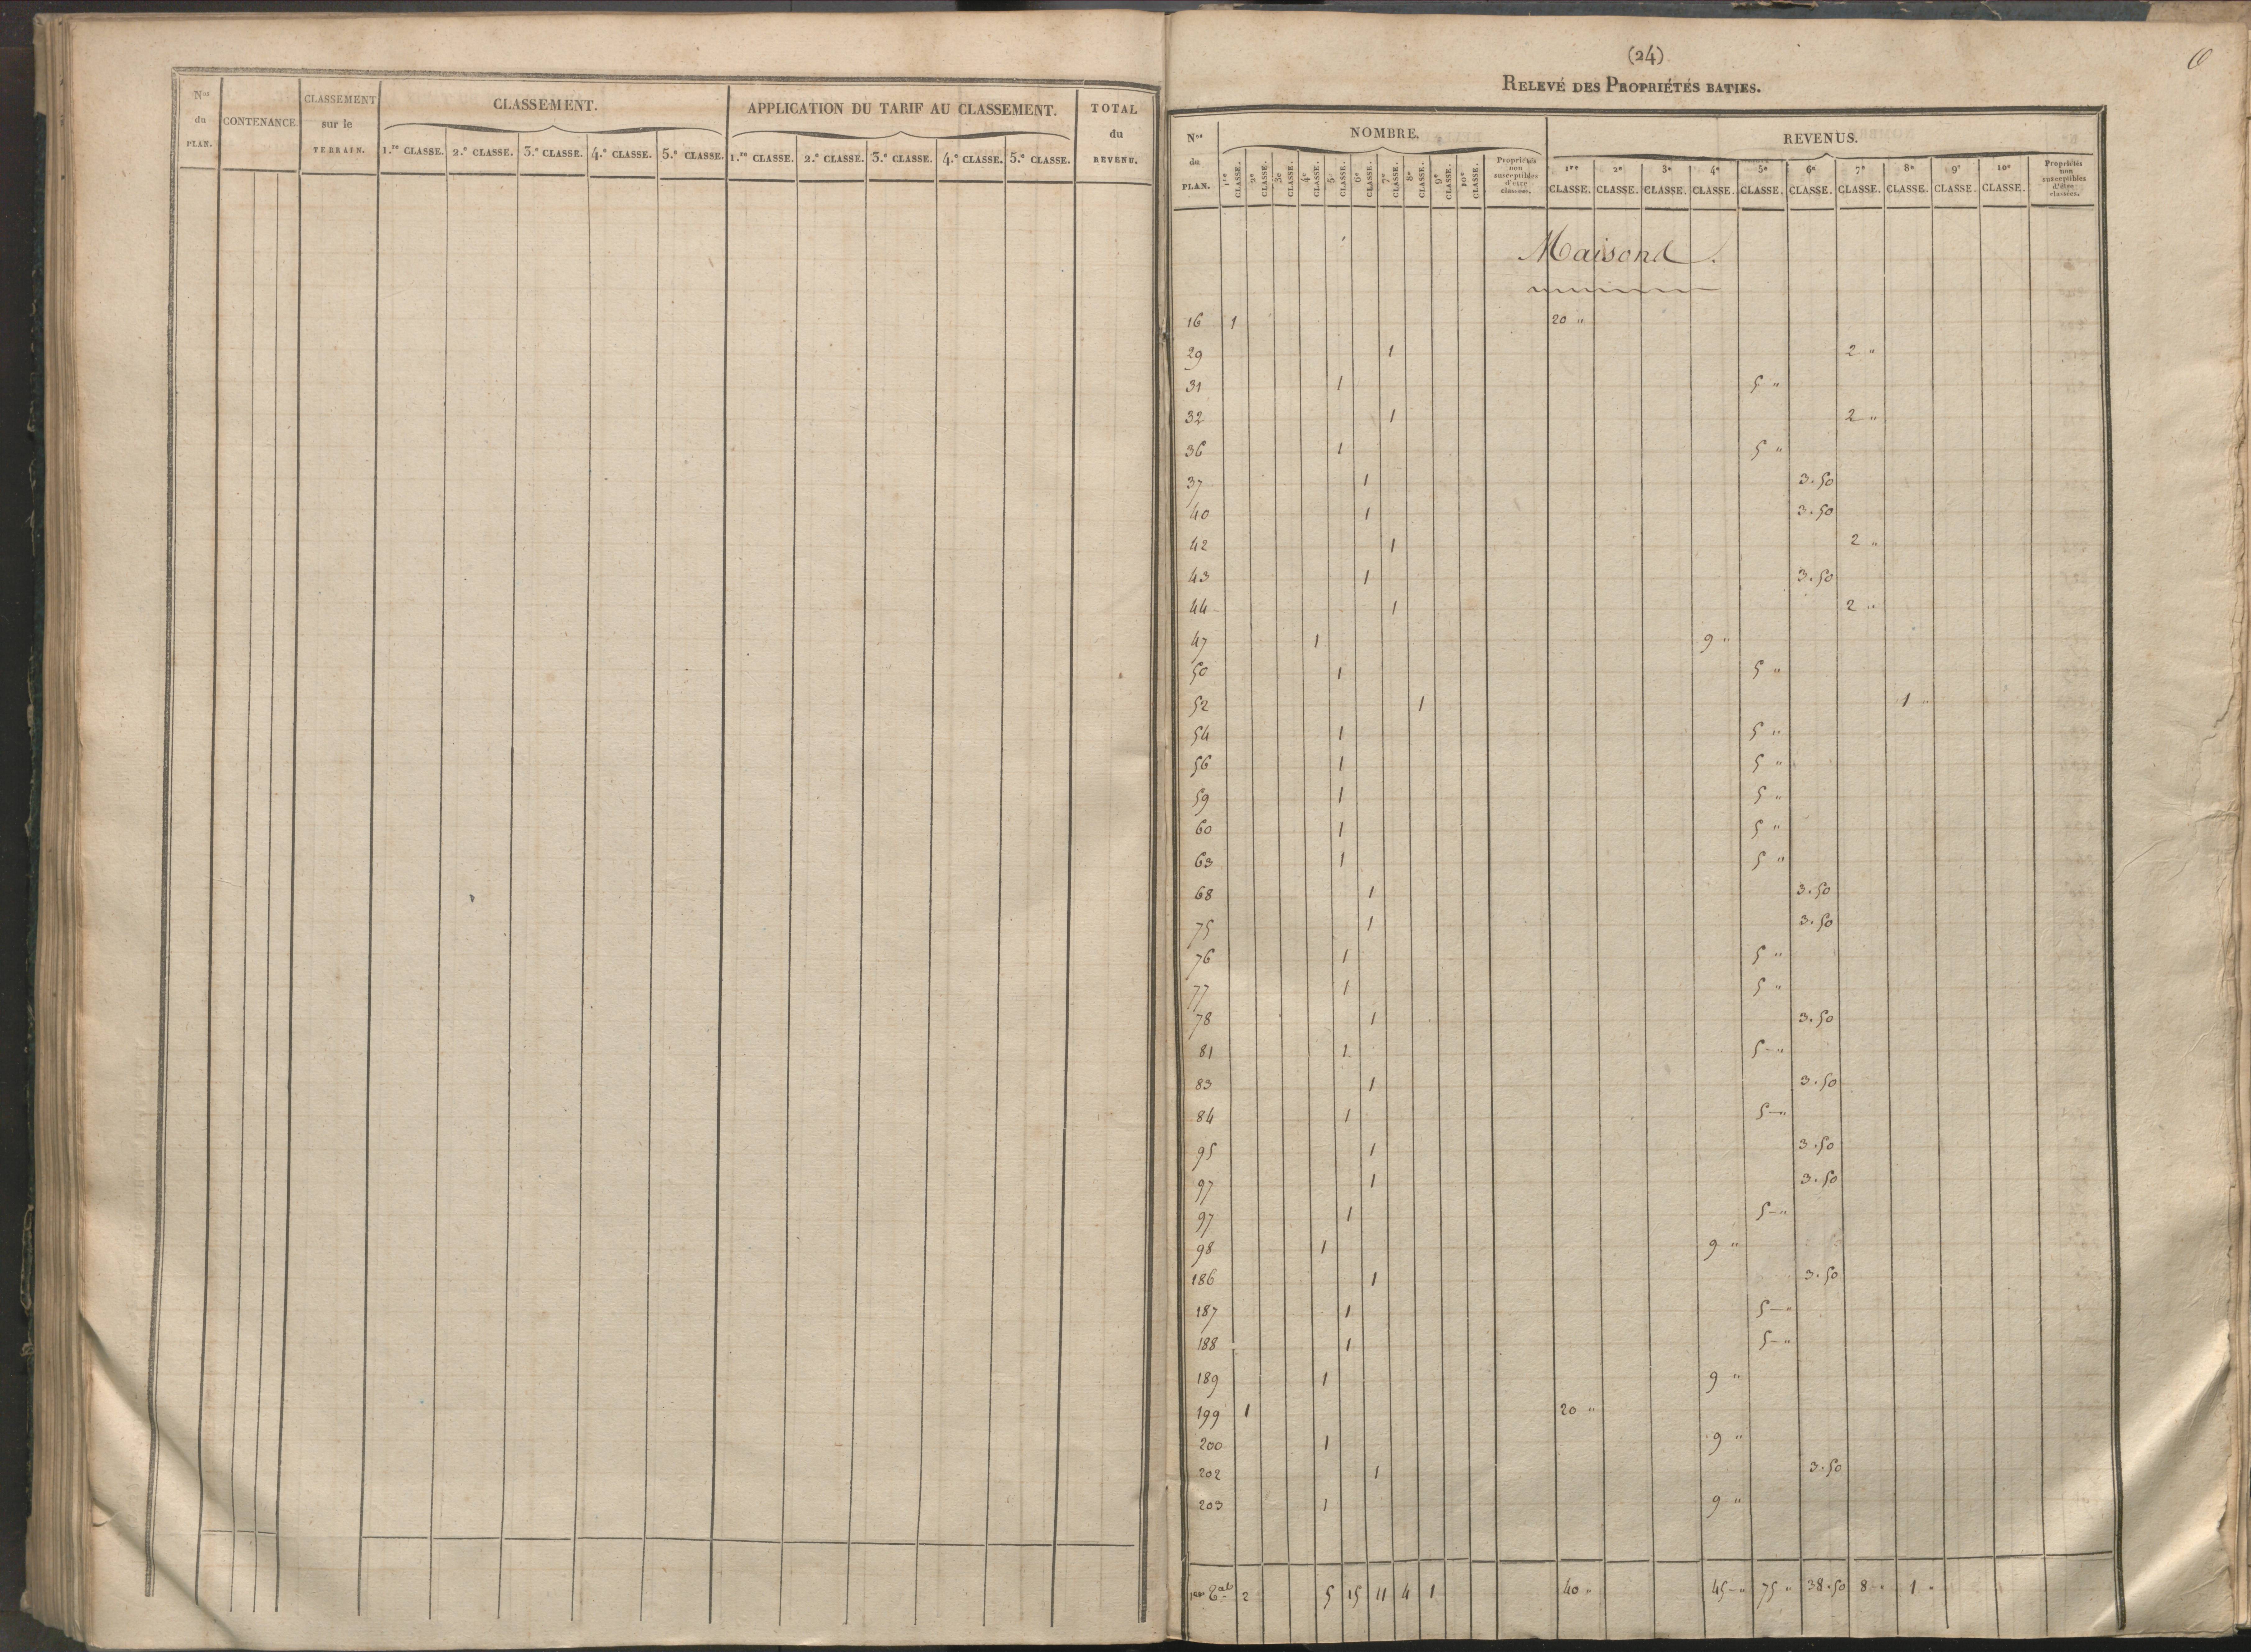 Nos du PLAN.
CONTENANCE.
CLASSEMENT sur le TERRAIN.
CLASSEMENT.
1.re CLASSE. 2.e CLASSE. 3.e CLASSE. 4.e CLASSE. 5.e CLASSE.
APPLICATION DU TARIF AU CLASSEMENT.
1.re CLASSE. 2.e CLASSE. 3.e CLASSE. 4.e CLASSE. 5.e CLASSE.
TOTAL du REVENU.
(24)
RELEVÉ DES PROPRIÉTÉS BATIES.
Nos du PLAN.
NOMBRE.
1re CLASSE. 2e CLASSE. 3e CLASSE. 4e CLASSE. 5e CLASSE. 6e CLASSE. 7e CLASSE. 8e CLASSE. 9e CLASSE. 10e CLASSE. Propriétés non susceptibles d'être classées.
REVENUS.
1re CLASSE. 2e CLASSE. 3e CLASSE. 4e CLASSE. 5e CLASSE. 6e CLASSE. 7e CLASSE. 8e CLASSE. 9e CLASSE. 10e CLASSE. Propriétés non susceptibles d'être classées.
Maisons.
16 1 20 "
29 1 2 "
31 1 5 "
32 1 2 "
36 1 5 "
37 1 3.50
40 1 3.50
42 1 2 "
43 1 3.50
44 1 2 "
47 1 9 "
50 1 5 "
52 1 1 "
54 1 5 "
56 1 5 "
59 1 5 "
60 1 5 "
63 1 5 "
68 1 3.50
75 1 3.50
76 1 5 "
77 1 5 "
78 1 3.50
81 1 5-"
83 1 3.50
84 1 5-"
95 1 3.50
97 1 3.50
97 1 5-"
98 1 9 "
186 1 3.50
187 1 5-"
188 1 5-"
189 1 9 "
199 1 20 "
200 1 9 "
202 1 3.50
203 1 9 "
2 5 15 11 4 1 40 " 45-" 75 " 38.50 8-" 1 "